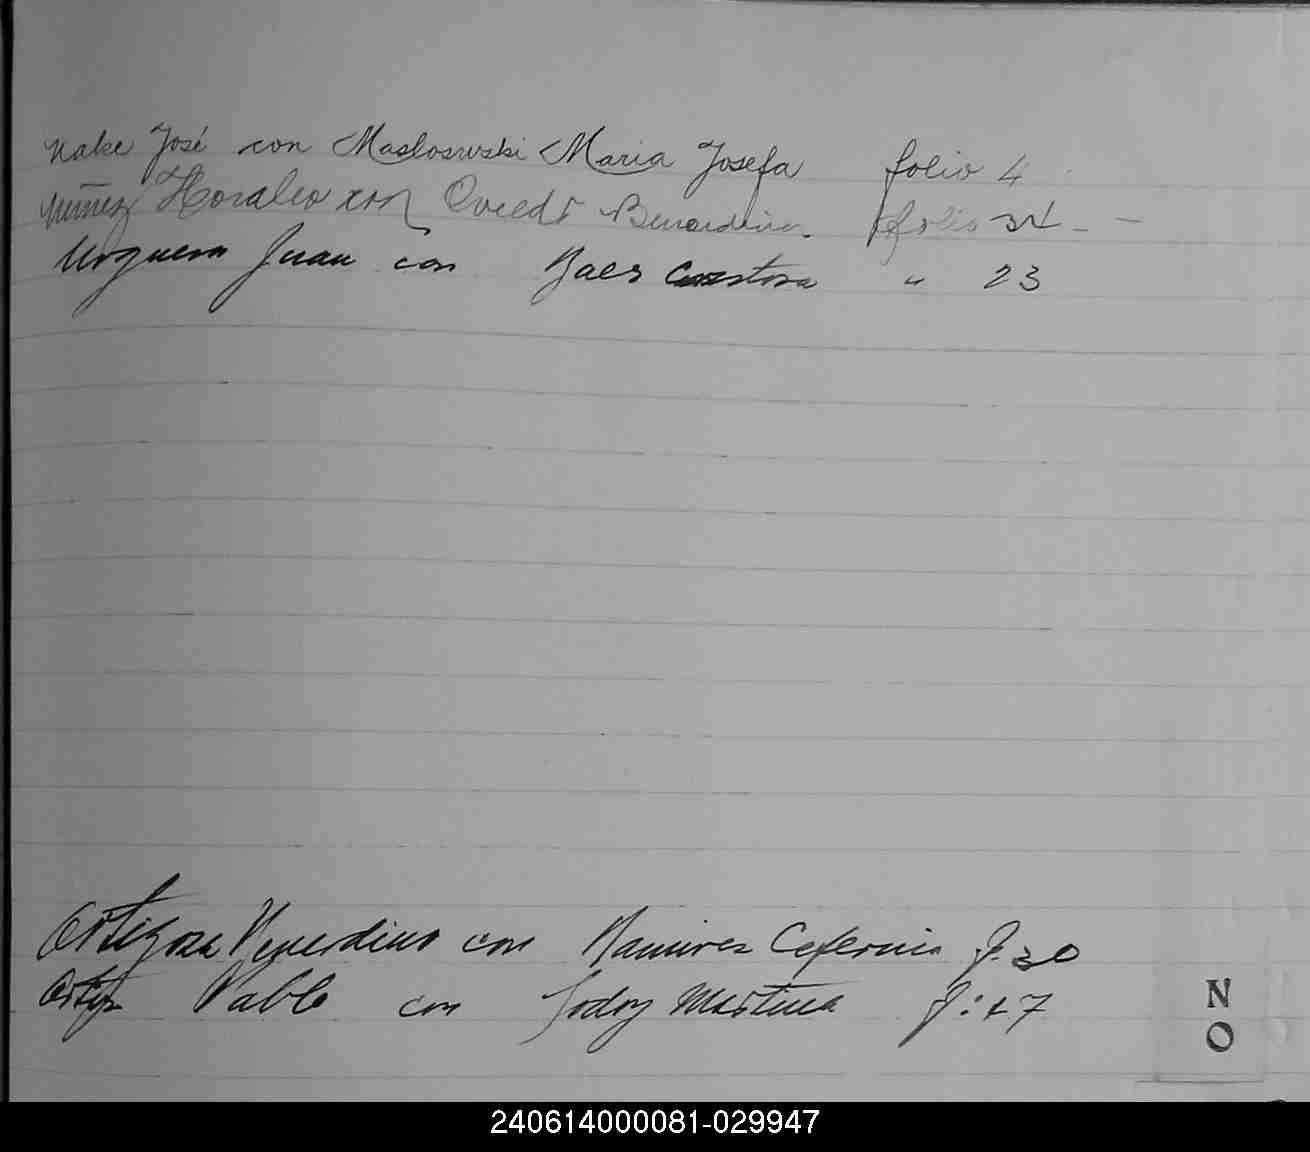 Nake José con Masloswski Maria Josefa folio 4
Nuñez Horaleo con Oviedo Bernardina folio 34 -
Noguera Juan con Baes " 23
Ortigoza Venerdino con Ramirez Cefernia f. 30
Ortiz Pablo con Godoy Martina f: 47
N
O
240614000081-029947